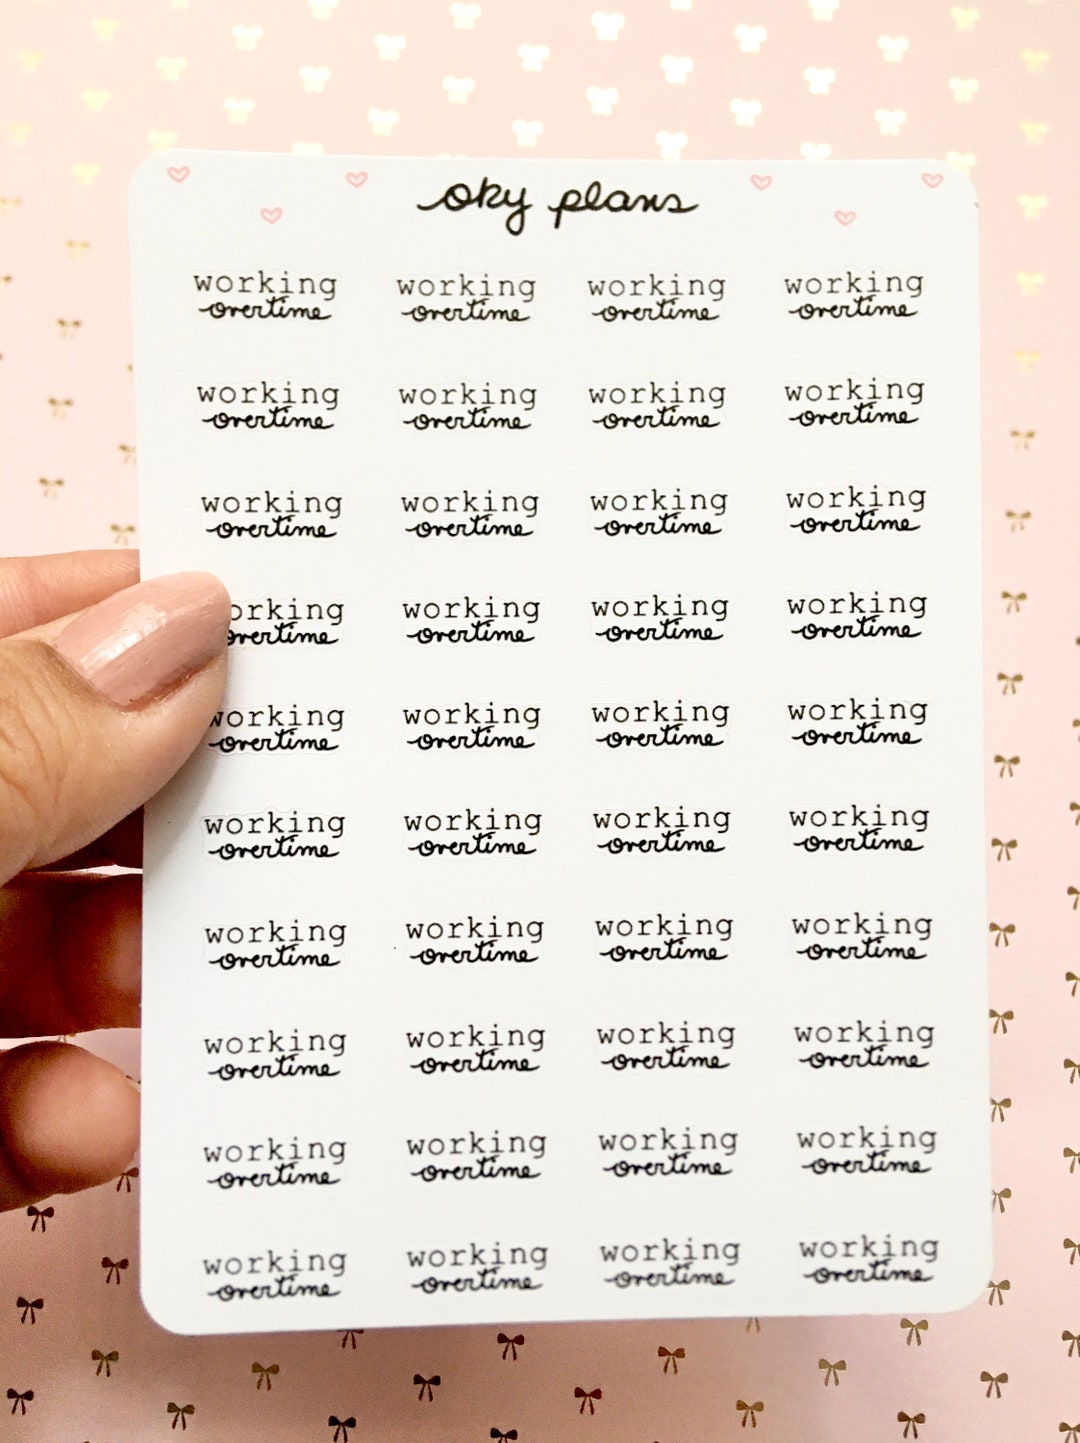 oky plans
working working working working
overtime overtime overtime overtime
working working working working
overtime overtime overtime overtime
working working working working
overtime overtime overtime overtime
orking working working working
overtime overtime overtime overtime
working working working working
overtime overtime overtime overtime
working working working working
overtime overtime overtime overtime
working working working working
overtime overtime overtime overtime
working working working working
overtime overtime overtime overtime
working working working working
overtime overtime overtime overtime
working working working working
overtime overtime overtime overtime